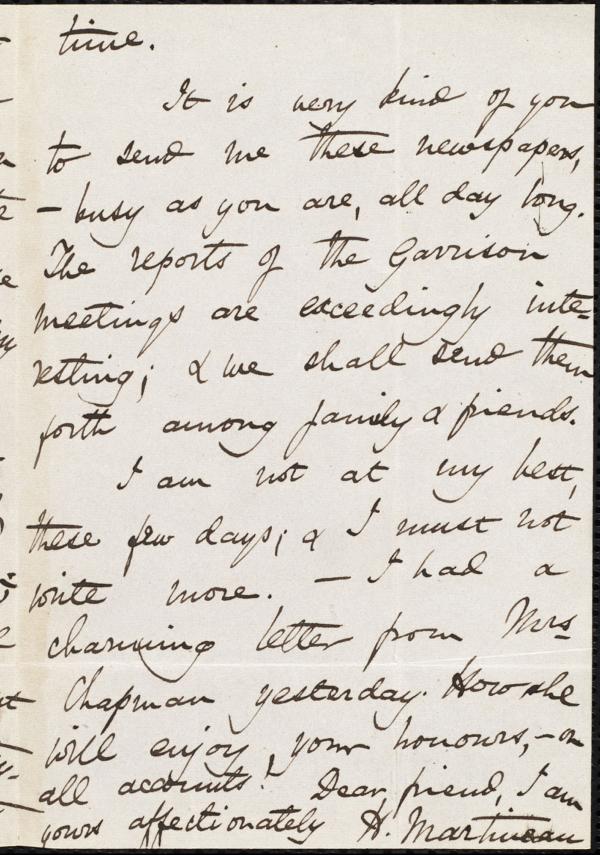 time.
It is very kind of you
to send me these newspapers,
– busy as you are, all day long.
The reports of the Garrison
meetings are exceedingly inte-
resting; & we shall send them
forth among family & friends.
I am not at my best,
these few days; & I must not
write more. – I had a
charming letter from Mrs
Chapman yesterday. How she
will enjoy your honours, – on
all accounts! Dear friend, I am
yours affectionately H. Martineau